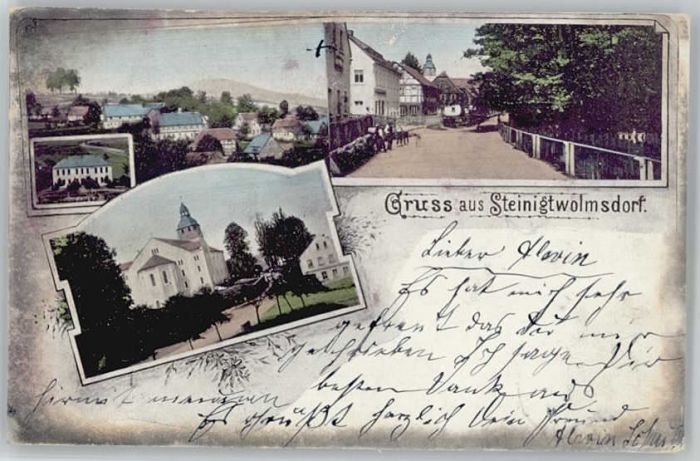 Gruss aus Steinigtwolmsdorf.
Lieber Alwin
Es hat mich sehr
gefreut das Du mir
geschrieben Ich sage Dir
hirmit meinen besten Dank und
Es grüßt herzlich Dein Freund
Alwin